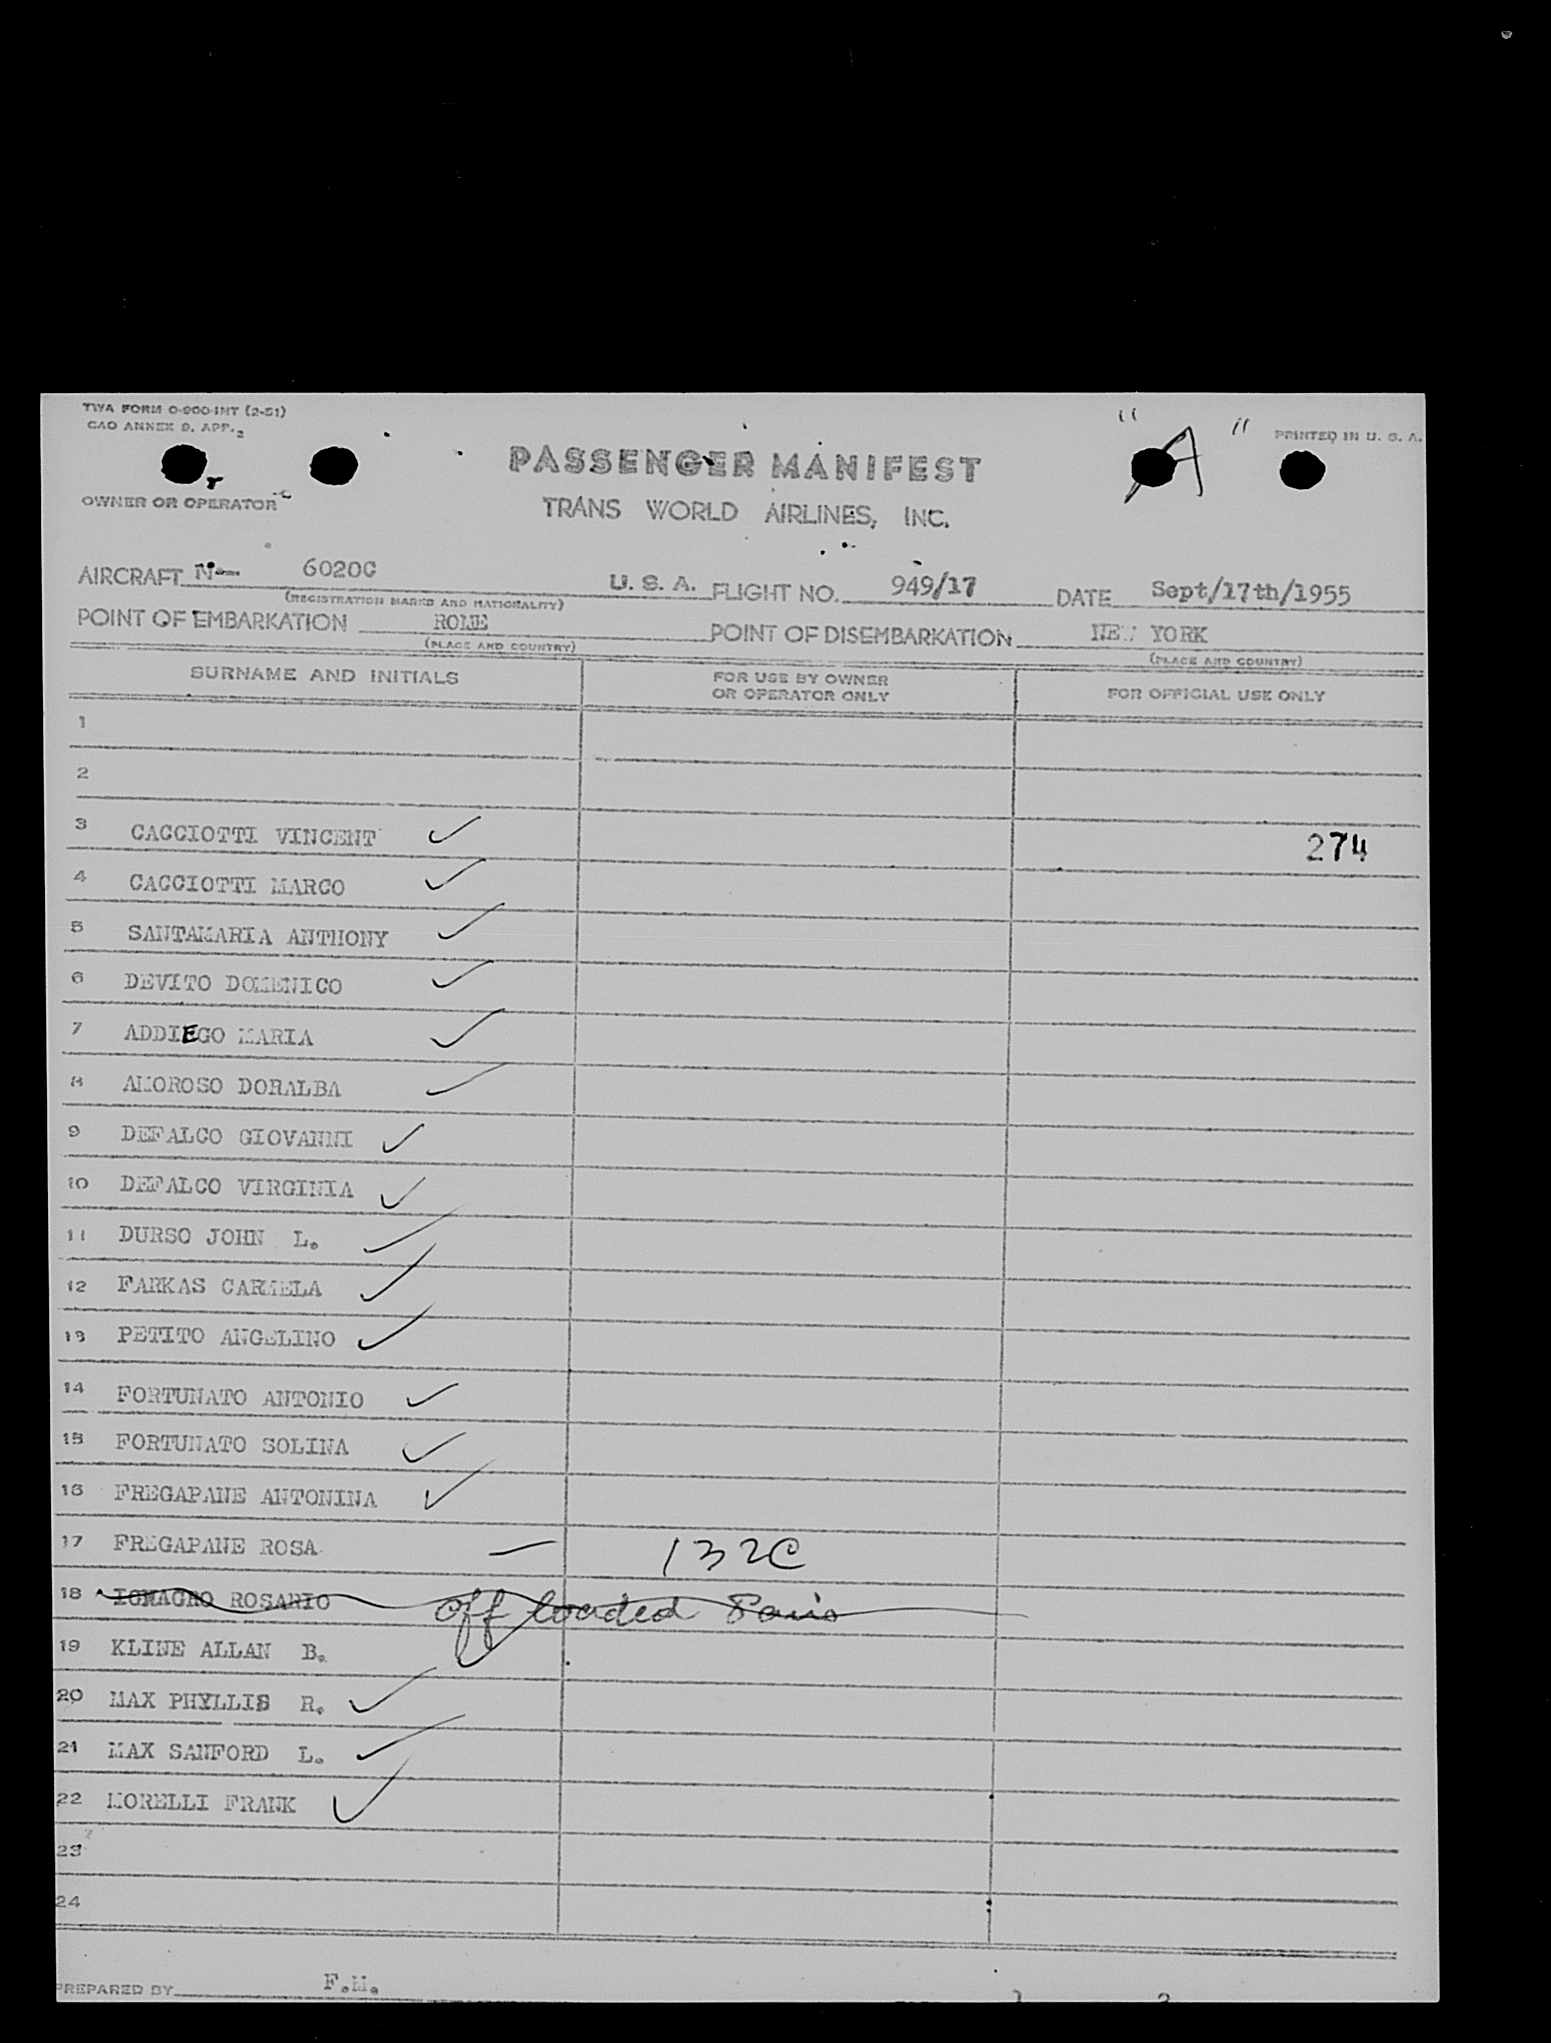 TWA FORM O-900-INT (2-51)
CAO ANNEX 9, APP. 2
" A "
PRINTED IN U. S. A.
PASSENGER MANIFEST
OWNER OR OPERATOR
TRANS WORLD AIRLINES, INC.
AIRCRAFT N— 6020C U. S. A. FLIGHT NO. 949/17 DATE Sept/17th/1955
(REGISTRATION MARKS AND NATIONALITY)
POINT OF EMBARKATION ROME POINT OF DISEMBARKATION NEW YORK
(PLACE AND COUNTRY) (PLACE AND COUNTRY)
SURNAME AND INITIALS FOR USE BY OWNER OR OPERATOR ONLY FOR OFFICIAL USE ONLY
1
2
3 CACCIOTTI VINCENT ✓ 274
4 CACCIOTTI MARCO ✓
5 SANTAMARIA ANTHONY ✓
6 DEVITO DOMENICO ✓
7 ADDIEGO MARIA ✓
8 AMOROSO DORALBA ✓
9 DEFALCO GIOVANNI ✓
10 DEFALCO VIRGINIA ✓
11 DURSO JOHN L. ✓
12 FARKAS CARMELA ✓
13 PETITO ANGELINO ✓
14 FORTUNATO ANTONIO ✓
15 FORTUNATO SOLINA ✓
16 FREGAPANE ANTONINA ✓
17 FREGAPANE ROSA — 132C
18 ROSARIO off loaded Paris
19 KLINE ALLAN B. ✓
20 MAX PHYLLIS R. ✓
21 MAX SANFORD L. ✓
22 MORELLI FRANK ✓
23
24
PREPARED BY F.M.